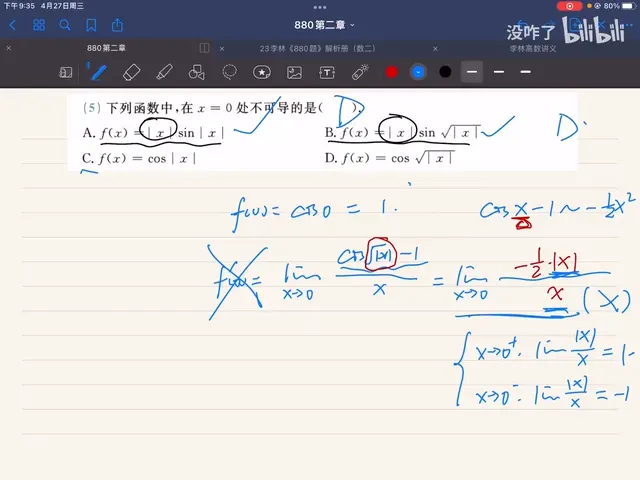 下午9:35 4月27日周三
80%
880 第二章
没咋了 bilibili
880 第二章
23李林《880题》解析册（数二）
李林高数讲义
(5) 下列函数中,在 x = 0 处不可导的是( D ).
A. f(x) = | x | sin | x |
B. f(x) = | x | sin √| x |
D.
C. f(x) = cos | x |
D. f(x) = cos √| x |
f(0) = cos 0 = 1.
cos x - 1 ~ -1/2 x²
f'(0) = lim x→0 (cos √|x| - 1) / x = lim x→0 (-1/2 · |x|) / x (X)
x→0⁺. lim |x|/x = 1.
x→0⁻. lim |x|/x = -1